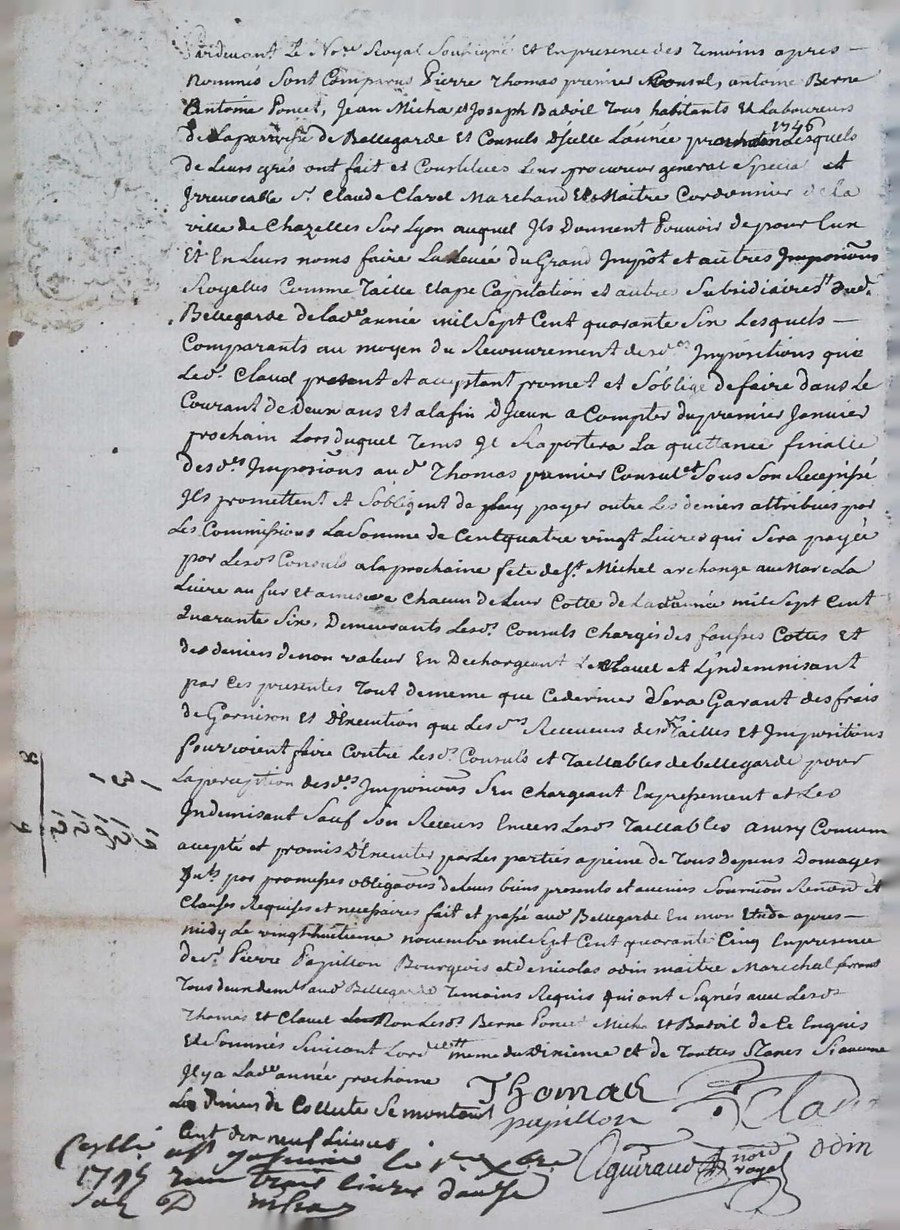 Pardevant Le No.re Royal Soubsigné Et En presence des Temoins apres —
nommés Sont Comparus Pierre Thomas premier Consul, antoine Berne
Antoine Poncet, Jean Micha et Joseph Badoil Tous habitants Et Laboureurs
de Laparroisse de Bellegarde Et Consuls D'icelle L'année prochaine 1746 Lesquels
de Leurs grés ont fait et Constitués Leur procureur general et Special et
Irrevocable Sr. Claude Clavel Marchand Et Maitre Cordonnier de La
ville de Chazelles Sur Lyon auquel Ils Donnent Pouvoir de pour Eux
Et En Leurs noms faire La Levée Du Grand Impôt et autres Impoõns
Royalles Comme Taille Etape Capitation et autres Subsidiaires dud.
Bellegarde de Lad. année mil Sept Cent quarante Six Lesquels —
Comparants au moyen du Recouvrement desd. Impositions que
Led. Claud present et acceptant promet et S'oblige de faire dans Le
Courant de Deux ans Et a la fin D'Iceux a Compter du premier Janvier
prochain Lors duquel Tems Il Raportera La quittance finalle
des d.es Impoõns au d. Thomas premier Consul et Sous Son Recepissé
Ils promettent et S'obligent de luy payer outre Les deniers attribués par
Les Commissions La Somme de Cent quatre vingt Livres qui Sera payée
par Lesd. Consuls a la prochaine fête de St. Michel archange au Marc La
Livre au fur Et a mesure Chacun de Leur Cotte de Lad. année mil Sept Cent
Quarante Six, Demeurants Lesd. Consuls Chargés des fausses Cottes Et
des deniers de non valeur En Dechargeant Le Clavel et L'Indemnisant
par Ces presentes Tout de meme que Ce dernier Sera Garant des frais
de Garnison Et D'Execution que Les Srs Receveurs des Tailles Et Impositions
Pourroient faire Contre Lesd. Consuls et Taillables de bellegarde pour
La perception desd. Impoõns S'en Chargeant Expressement et Les
Indemnisant Sauf Son Recours Envers Lesd. Taillables ainsy Convenu
accepté et promis D'Executer par Les parties a peine de Tous Depens Domages
Int.ts par promesses obligaõns de Leurs biens presents et avenirs Soumõn Renonõn Et
Clauses Requises et necessaires fait et passé aud. Bellegarde En mon Etude apres —
midy Le vingt huitieme novembre mil Sept Cent quarante Cinq En presence
de Sr. Pierre Papillon Bourgeois et de nicolas odin maitre Marechal ferrant
Tous deux demt. aud Bellegarde Temoins Requis qui ont Signés avec Lesd.
Thomas Et Clavel Non Lesd. Berne Poncet Micha Et Badoil de Ce Enquis
Et Sommés Suivant Lord. meme du Dixieme et de Touttes Si aucune
Il y a Lad. année prochaine
Les Deniers de Collecte Se montent
Cent dix neuf Livres
Thomas
Clavel
papillon
odin
Aguiraud nore royal
1745 trois livres
1 19
3 12
1 10
12
12
8 9